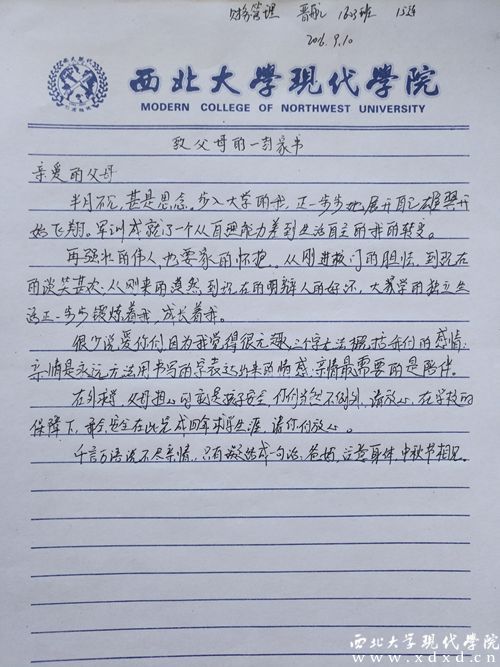 财务管理 晋航 1603班
2016.9.10
西北大學現代學院
MODERN COLLEGE OF NORTHWEST UNIVERSITY
致父母的一封家书
亲爱的父母
半月不见,甚是思念。步入大学的我,正一步步地展开自己雄翼开
始飞翔。军训成就了一个从自理能力差到生活自主的我的转变。
再强壮的伟人,也要家的怀抱。从刚进校门的胆怯,到现在
的谈笑甚欢,从刚来的漠然到现在的明辩人的好坏,大学的独立生
活正一步步锻炼着我,成长着我。
很少说爱你们因为我觉得很无趣三个字无法概括我们的感情;
亲情是永远无法用书写的字表达出来的情感;亲情最需要的是陪伴。
在外求学,父母担心的就是孩子安全你们当然不例外,请放心,在学校的
保障下,我会安全在此完成四年求学生涯,请你们放心。
千言万语说不尽亲情,只有凝结成一句话:爸妈,注意身体,中秋节相见。
西北大学现代学院
www.xdxd.cn